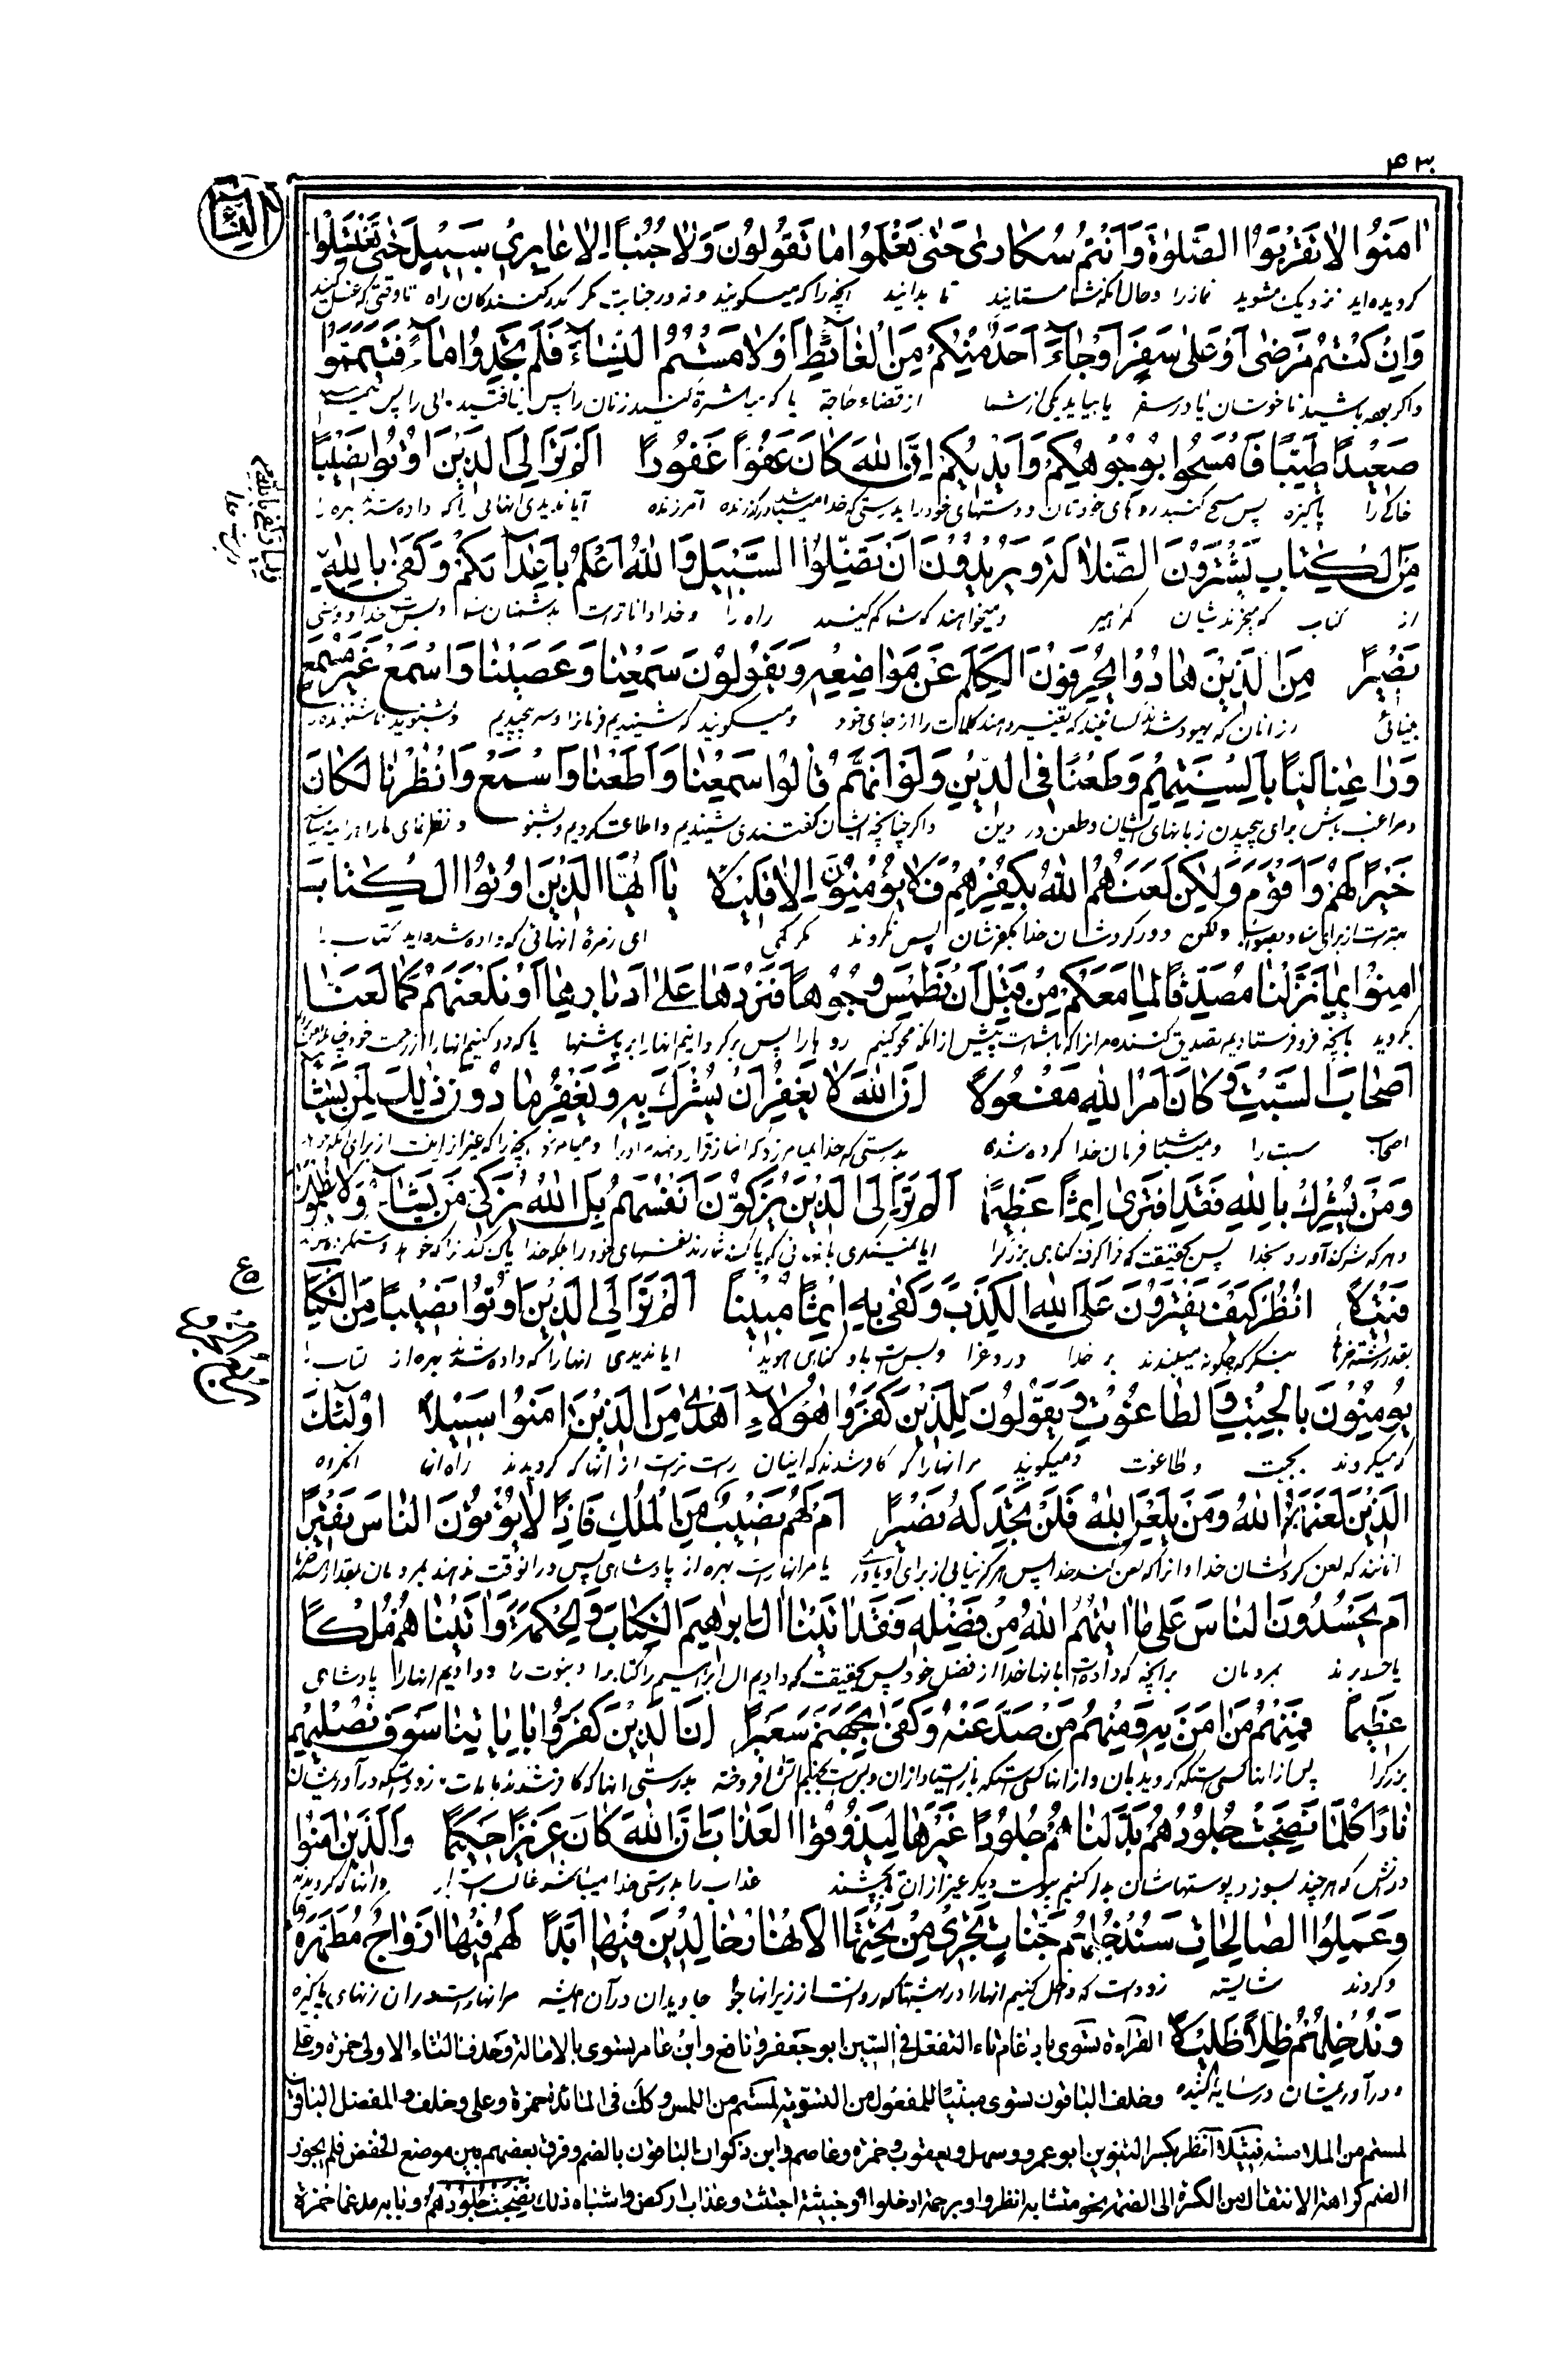 ۴۳۰
النساء
امَنُوا لا تَقْرَبُوا الصَّلوٰةَ وَاَنْتُمْ سُكارىٰ حَتّىٰ تَعْلَمُوا ما تَقُولُونَ وَلا جُنُباً اِلّا عابِرِي سَبِيلٍ حَتّىٰ تَغْتَسِلُوا
كرويده‌ايد نزديك مشويد نماز را وحال آنكه شما مستانيد تا بدانيد آنچه را كه ميگوئيد و نه در جنابت مگر گذركنندگان راه تا وقتى كه غسل كنيد
وَاِنْ كُنْتُمْ مَرْضىٰ اَوْ عَلىٰ سَفَرٍ اَوْ جاءَ اَحَدٌ مِنْكُمْ مِنَ الْغائِطِ اَوْ لامَسْتُمُ النِّساءَ فَلَمْ تَجِدُوا ماءً فَتَيَمَّمُوا
واگر بوده باشيد ناخوشان يا در سفر يا بيايد يكى از شما از قضاء حاجة يا كه مباشرة كنيد زنان را پس نيافتيد آبى را پس
صَعِيداً طَيِّباً فَامْسَحُوا بِوُجُوهِكُمْ وَاَيْدِيكُمْ اِنَّ اللهَ كانَ عَفُوّاً غَفُوراً اَلَمْ تَرَ اِلَى الَّذِينَ اُوتُوا نَصِيباً
خاكى را پاكيزه پس مسح كنيد رويهاى خودتان و دستهاى خود را بدرستى كه خدا ميباشد درگذرنده آمرزنده آيا نديدى آنهائى را كه داده شدند بهره
مِنَ الْكِتابِ يَشْتَرُونَ الضَّلالَةَ وَيُرِيدُونَ اَنْ تَضِلُّوا السَّبِيلَ وَاللهُ اَعْلَمُ بِاَعْدائِكُمْ وَكَفىٰ بِاللهِ
از كتاب كه ميخرند ايشان گمراهى و ميخواهند كه شما گم كنيد راه را و خدا داناتر است بدشمنان شما و بس است خدا
نَصِيراً مِنَ الَّذِينَ هادُوا يُحَرِّفُونَ الْكَلِمَ عَنْ مَواضِعِهِ وَيَقُولُونَ سَمِعْنا وَعَصَيْنا وَاسْمَعْ غَيْرَ مُسْمَعٍ
از آنان كه يهود شدند كسانيند كه تغيير دهند كلمات را از جاى خود و ميگويند كه شنيديم فرمان را و سرپيچيديم و بشنويد ناشنونده
وَراعِنا لَيّاً بِاَلْسِنَتِهِمْ وَطَعْناً فِي الدِّينِ وَلَوْ اَنَّهُمْ قالُوا سَمِعْنا وَاَطَعْنا وَاسْمَعْ وَانْظُرْنا لَكانَ
و مراعى باش براى پيچيدن زبانهاى ايشان و طعن در دين و اگر چنانچه ايشان گفتندى شنيديم و اطاعت كرديم و بشنو و نظر نماى ما را
خَيْراً لَهُمْ وَاَقْوَمَ وَلٰكِنْ لَعَنَهُمُ اللهُ بِكُفْرِهِمْ فَلا يُؤْمِنُونَ اِلّا قَلِيلاً يا اَيُّهَا الَّذِينَ اُوتُوا الْكِتابَ
بهتر است از براى ايشان ولكن دور كرد ايشان خدا بكفرشان پس نگروند مگر كمى اى زمرهٔ آنهائى كه داده شده‌ايد كتاب
امِنُوا بِما نَزَّلْنا مُصَدِّقاً لِما مَعَكُمْ مِنْ قَبْلِ اَنْ نَطْمِسَ وُجُوهاً فَنَرُدَّها عَلىٰ اَدْبارِها اَوْ نَلْعَنَهُمْ كَما لَعَنّا
بگرويد بآنچه فرو فرستاديم تصديق كننده مر آنرا كه با شما است پيش از آنكه محو كنيم روها را پس برگردانيم آنها را بر پشتها يا كه دور كنيم آنها را از رحمت خود
اَصْحابَ السَّبْتِ وَكانَ اَمْرُ اللهِ مَفْعُولاً اِنَّ اللهَ لا يَغْفِرُ اَنْ يُشْرَكَ بِهِ وَيَغْفِرُ ما دُونَ ذٰلِكَ لِمَنْ يَشاءُ
اصحاب سبت را و ميباشد فرمان خدا كرده شده بدرستى كه خدا نميامرزد كه انباز قرار دهند او را و ميامرزد آنچه را كه غير از اينست از براى
وَمَنْ يُشْرِكْ بِاللهِ فَقَدِ افْتَرىٰ اِثْماً عَظِيماً اَلَمْ تَرَ اِلَى الَّذِينَ يُزَكُّونَ اَنْفُسَهُمْ بَلِ اللهُ يُزَكِّي مَنْ يَشاءُ وَلا يُظْلَمُونَ
و هر كه شرك آورد بخدا پس بحقيقت كه فرا گرفته گناهى بزرگ را آيا نمينگرى بآنانى كه پاك شمارند نفسهاى خود را بلكه خدا پاك كند آنرا كه خواهد
فَتِيلاً اُنْظُرْ كَيْفَ يَفْتَرُونَ عَلَى اللهِ الْكَذِبَ وَكَفىٰ بِهِ اِثْماً مُبِيناً اَلَمْ تَرَ اِلَى الَّذِينَ اُوتُوا نَصِيباً مِنَ الْكِتابِ
بقدر رشته خرما بنگر كه چگونه ميبندند بر خدا دروغ را و بس است باو گناهى هويدا آيا نديدى آنها را كه داده شدند بهره از كتاب
يُؤْمِنُونَ بِالْجِبْتِ وَالطّاغُوتِ وَيَقُولُونَ لِلَّذِينَ كَفَرُوا هٰؤُلاءِ اَهْدىٰ مِنَ الَّذِينَ امَنُوا سَبِيلاً اُولٰئِكَ
كه ميگروند بجبت و طاغوت و ميگويند مر آنها را كه كافر شدند كه اينان راست‌ترست از آنها كه گرويدند راه آنها آنگروه
الَّذِينَ لَعَنَهُمُ اللهُ وَمَنْ يَلْعَنِ اللهُ فَلَنْ تَجِدَ لَهُ نَصِيراً اَمْ لَهُمْ نَصِيبٌ مِنَ الْمُلْكِ فَاِذاً لا يُؤْتُونَ النّاسَ نَقِيراً
آنانند كه لعن كرد ايشان خدا و آنرا كه لعن كند خدا پس هرگز نيابى از براى او ياور يا مر آنها راست بهره از پادشاهى پس در آنوقت ندهند بمردمان
اَمْ يَحْسُدُونَ النّاسَ عَلىٰ ما اتٰيهُمُ اللهُ مِنْ فَضْلِهِ فَقَدْ اتَيْنا الَ اِبْراهِيمَ الْكِتابَ وَالْحِكْمَةَ وَاتَيْناهُمْ مُلْكاً
يا حسد برند بمردمان برآنچه كه داده است بآنها خدا از فضل خود پس بحقيقت كه داديم آل ابراهيم را كتاب را و نبوت را و داديم آنها را پادشاهى
عَظِيماً فَمِنْهُمْ مَنْ امَنَ بِهِ وَمِنْهُمْ مَنْ صَدَّ عَنْهُ وَكَفىٰ بِجَهَنَّمَ سَعِيراً اِنَّ الَّذِينَ كَفَرُوا بِاياتِنا سَوْفَ نُصْلِيهِمْ
بزرگ را پس از آنها كسيستكه گرويد بآن و از آنها كسيستكه باز ايستاد از آن و بس است بجهنم آتش افروخته بدرستى آنها كه كافر شدند بايات زودستكه درآوريمشان
ناراً كُلَّما نَضِجَتْ جُلُودُهُمْ بَدَّلْناهُمْ جُلُوداً غَيْرَها لِيَذُوقُوا الْعَذابَ اِنَّ اللهَ كانَ عَزِيزاً حَكِيماً وَالَّذِينَ امَنُوا
در آتش كه هر چند بسوزد پوستهاشان بدل كنيم پوست ديگر غير از آن تا بچشند عذاب را بدرستى خدا ميباشد و آنها كه گرويدند
وَعَمِلُوا الصّالِحاتِ سَنُدْخِلُهُمْ جَنّاتٍ تَجْرِي مِنْ تَحْتِهَا الْاَنْهارُ خالِدِينَ فِيها اَبَداً لَهُمْ فِيها اَزْواجٌ مُطَهَّرَةٌ
و كردند شايسته زود است كه داخل كنيم آنها را در بهشتها كه روانست از زير آنها جويها جاويدان در آن هميشه مر آنها راست در آن زنهاى پاكيزه
وَنُدْخِلُهُمْ ظِلّاً ظَلِيلاً القراءة تسوى بادغام تاء التفعل فى السين ابو جعفر و نافع وابن عامر تسوى بالامالة وحذف التاء الاولى حمزة وعلى
و درآوريمشان در سايهٔ كشيده وخلف الباقون تسوى مبنيا للمفعول من التسوية لمستم من اللمس وكذلك فى المائدة حمزة وعلى وخلف والمفضل الباقون
لمستم من الملامسة فتيلا انظر بكسر التنوين ابو عمرو وسهل ويعقوب وحمزة وعاصم وابن ذكوان الباقون بالضم وفرق بعضهم بين موضع الخفض فلم يجوز
الضم كراهة الانتقال من الكسرة الى الضمة نحو متشابه انظروا وبرحمة ادخلوا وخبيثة اجتثت وعذاب اركض واشباه ذلك نضجت جلودهم وبابه مدغما حمزة